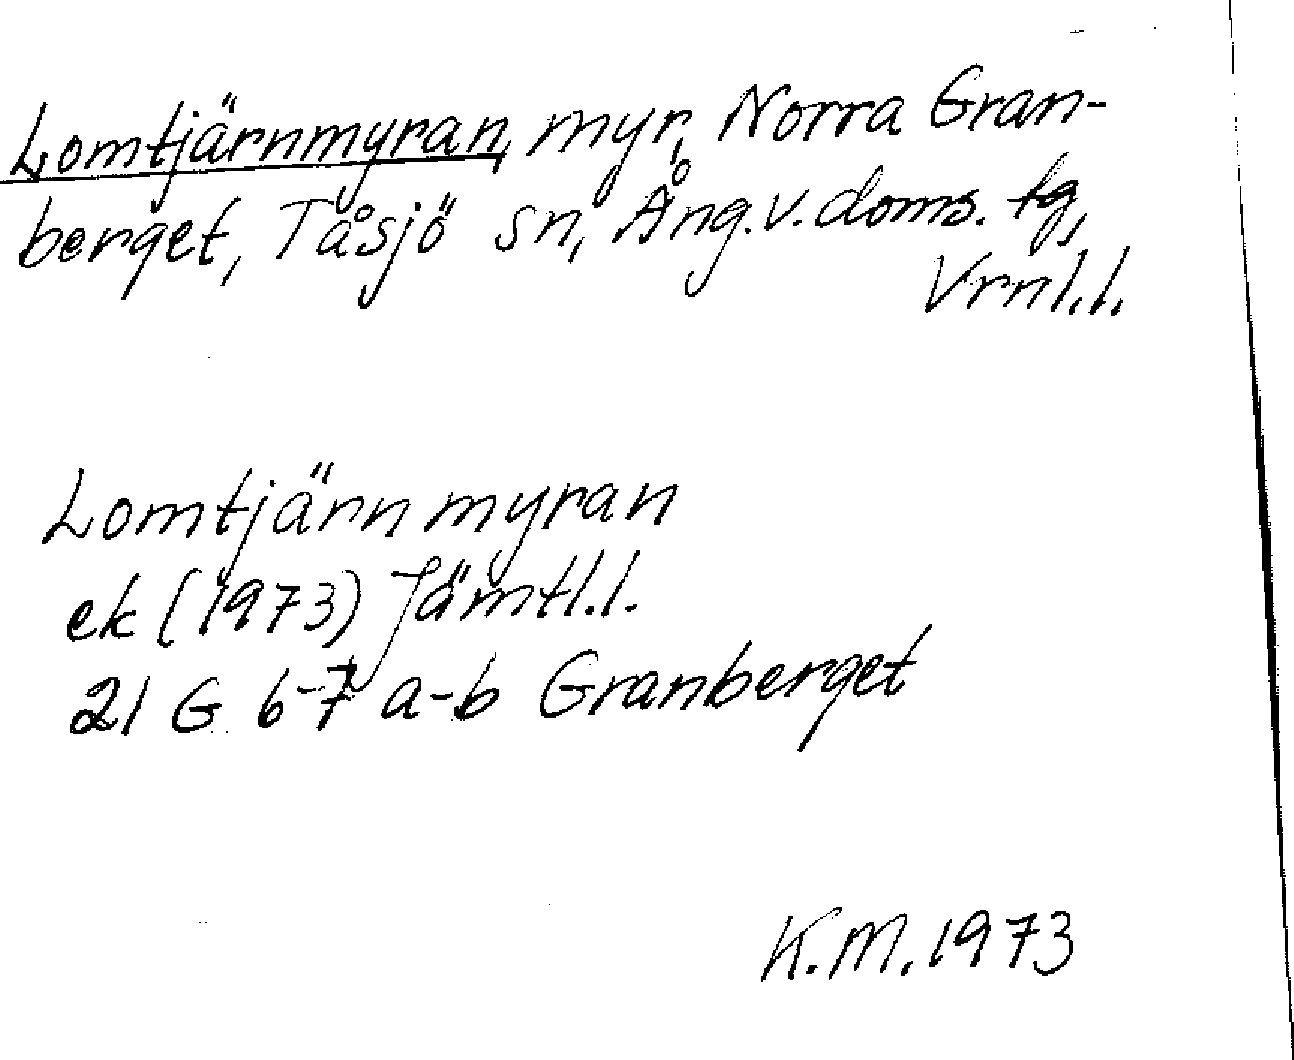 Lomtjärnmyran, myr, Norra Gran-
berget, Tåsjö sn, Ång.v.doms. tg,
Vrnl.l.
Lomtjärnmyran
ek (1973) Jämtl.l.
21 G 6-7 a-b Granberget
K.M. 1973